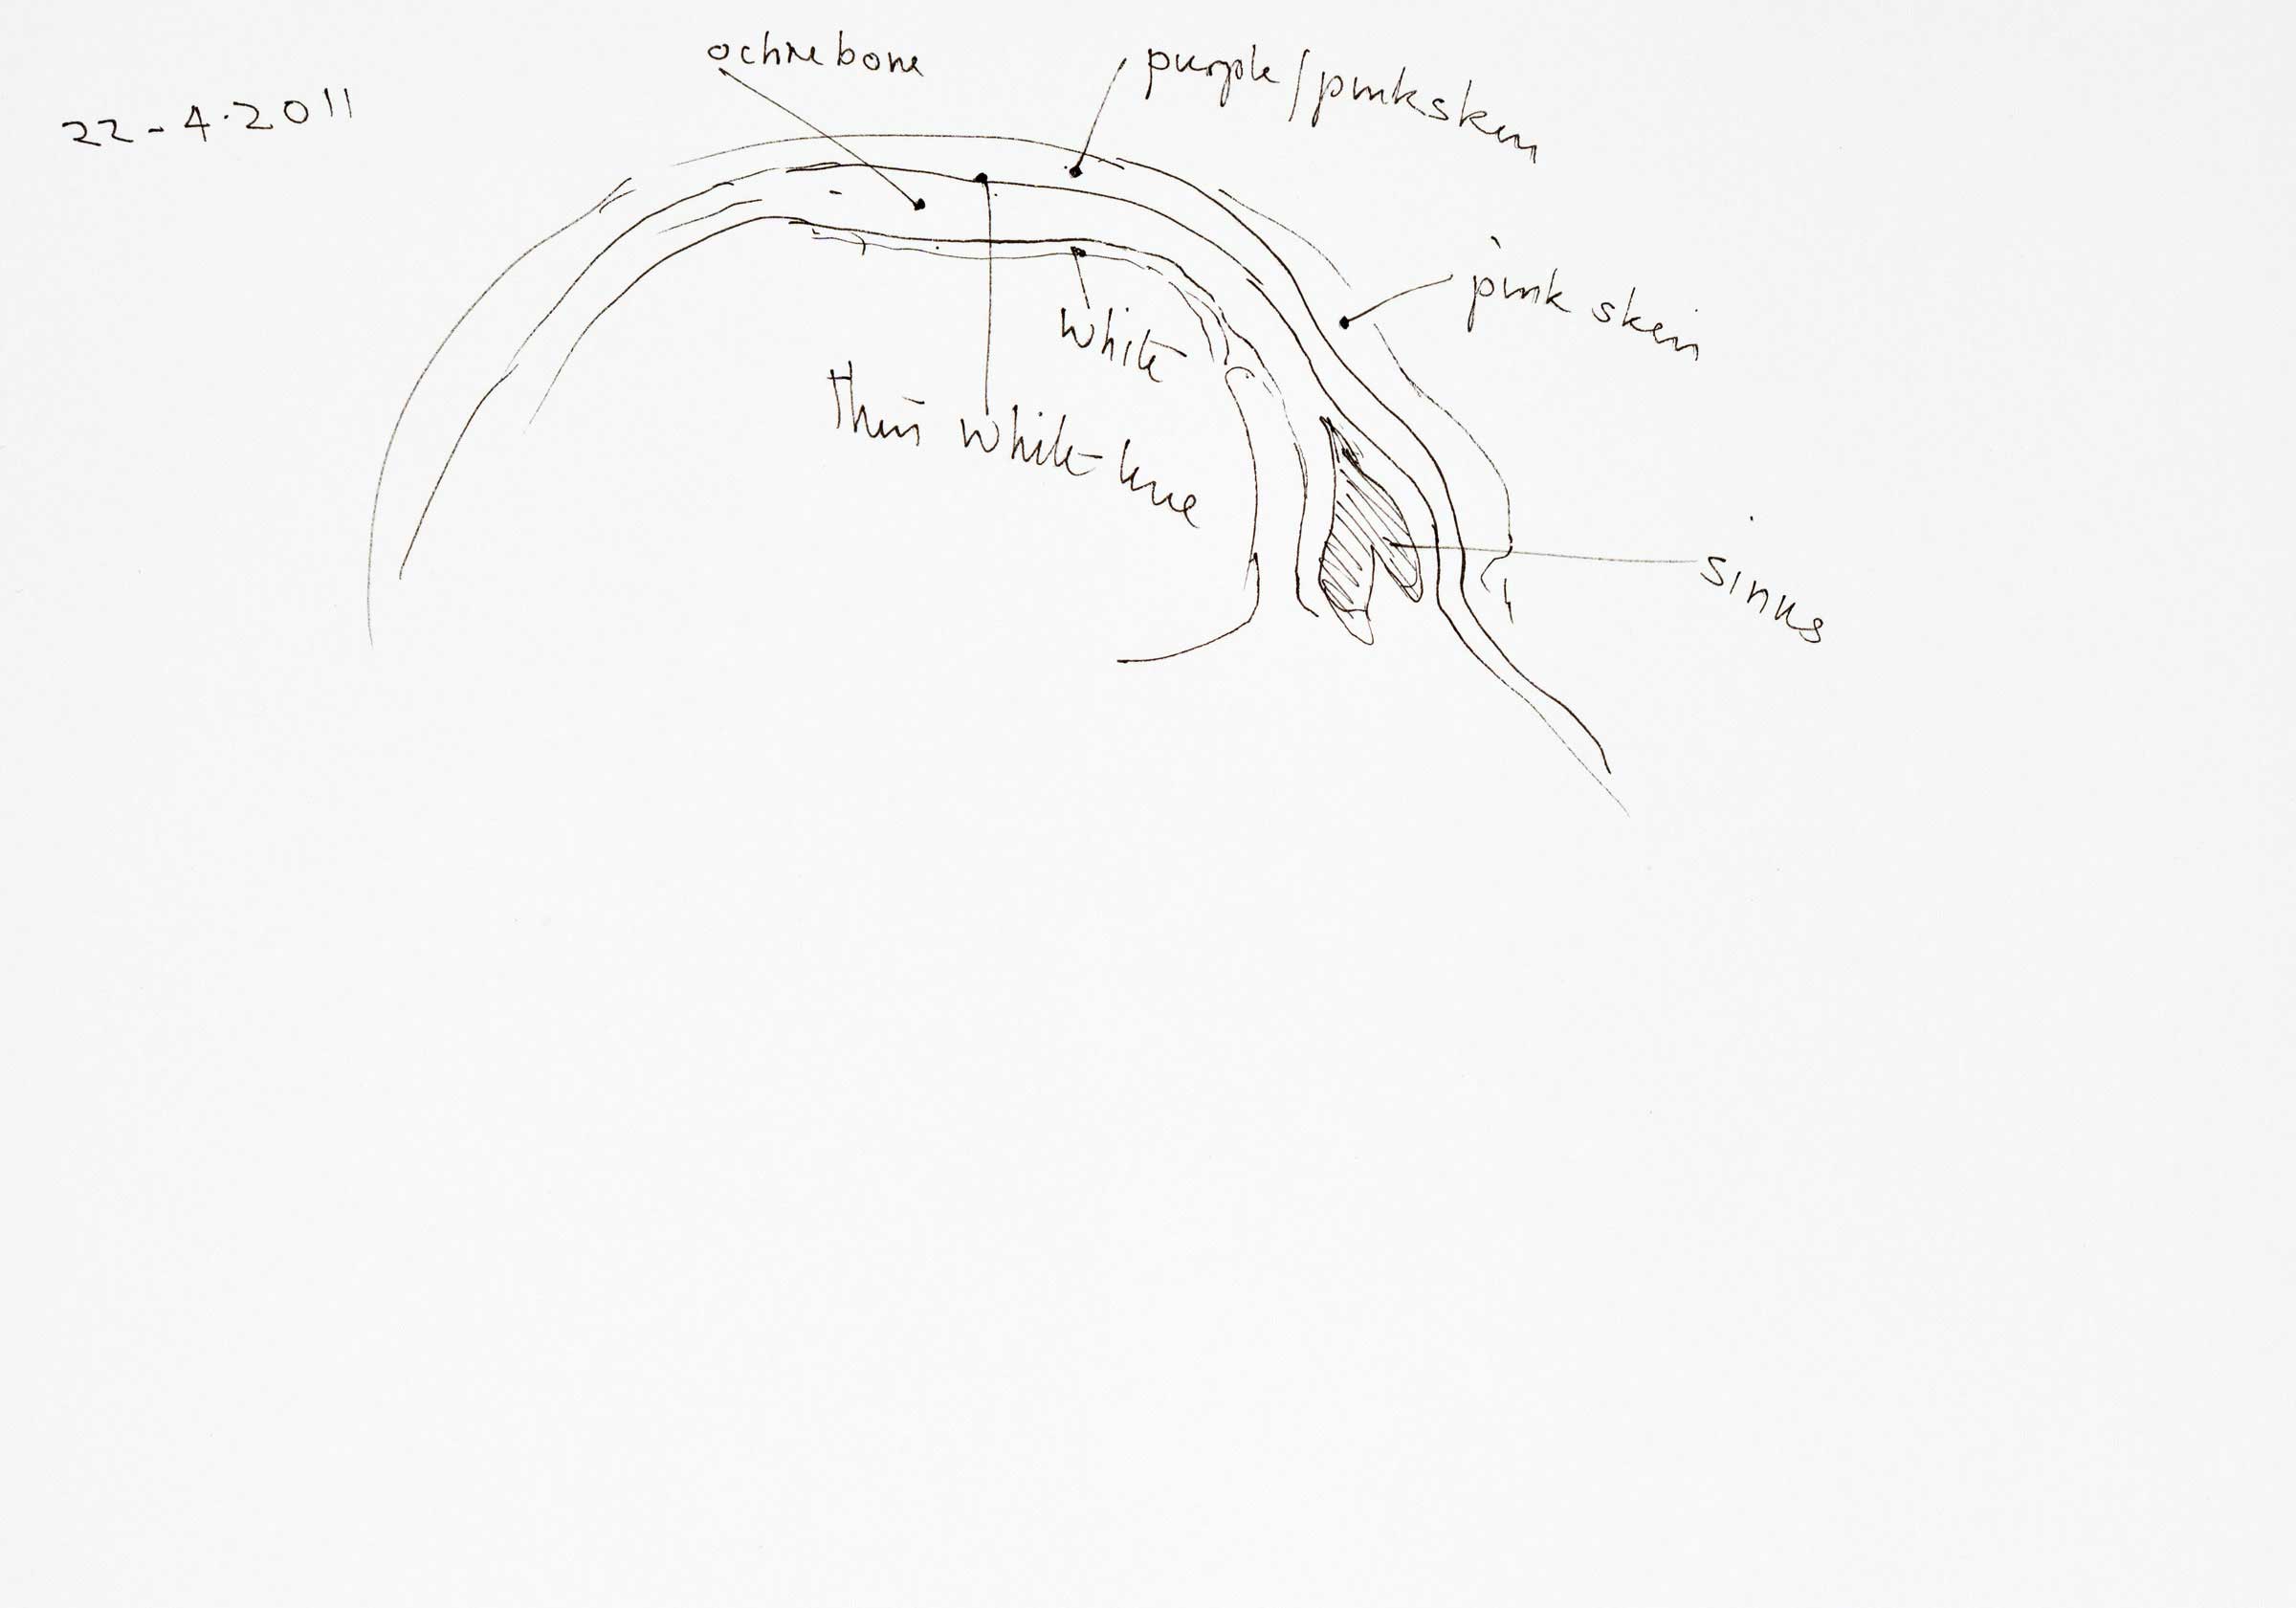 22-4.2011
ochre bone
purple/pink skin
pink skin
white
thin white line
sinus